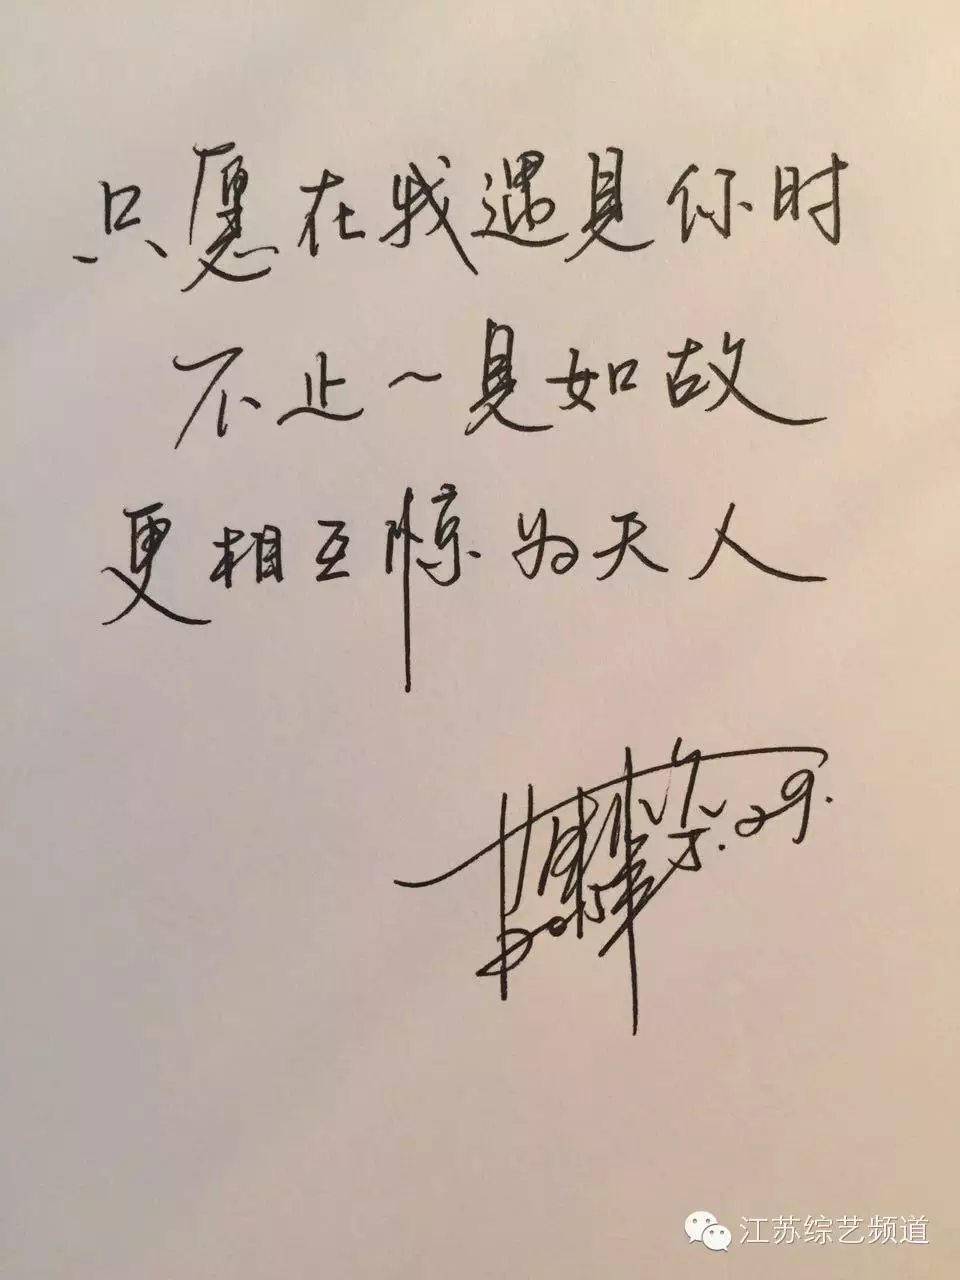 只愿在我遇见你时
不止一见如故
更相互惊为天人
2015.5.29.
江苏综艺频道